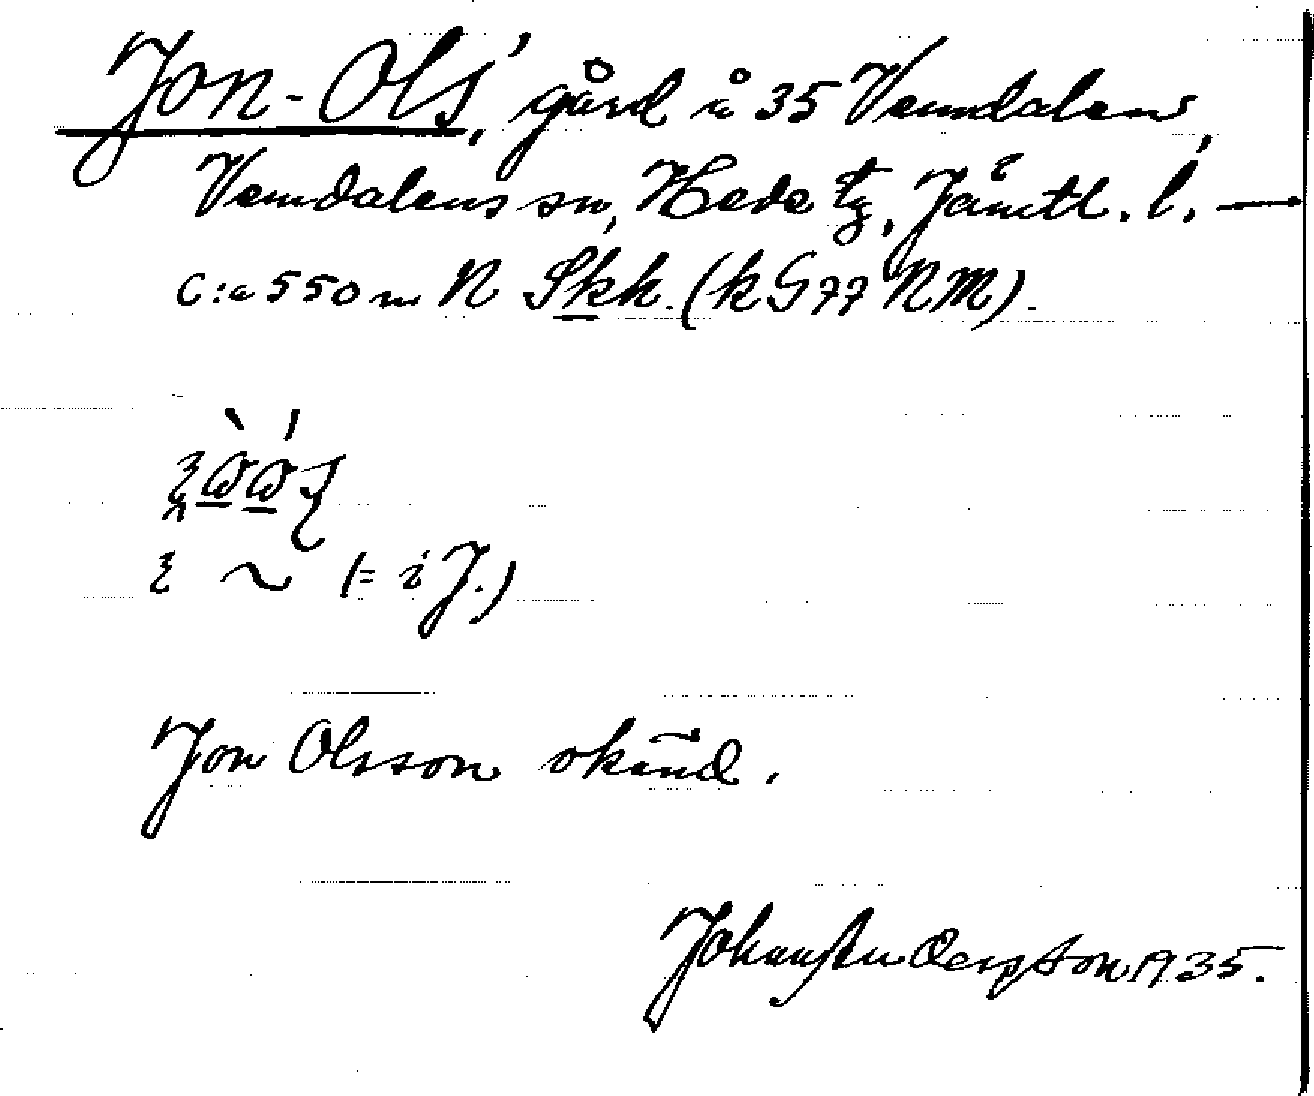 Jon-Ols', gård i 35 Vemdalen,
Vemdalens sn, Hede tg, Jämtl. l. —
c:a 550 m N Skk. (kG77 NM).
~ (= i J.)
Jon Olsson okänd.
1935.